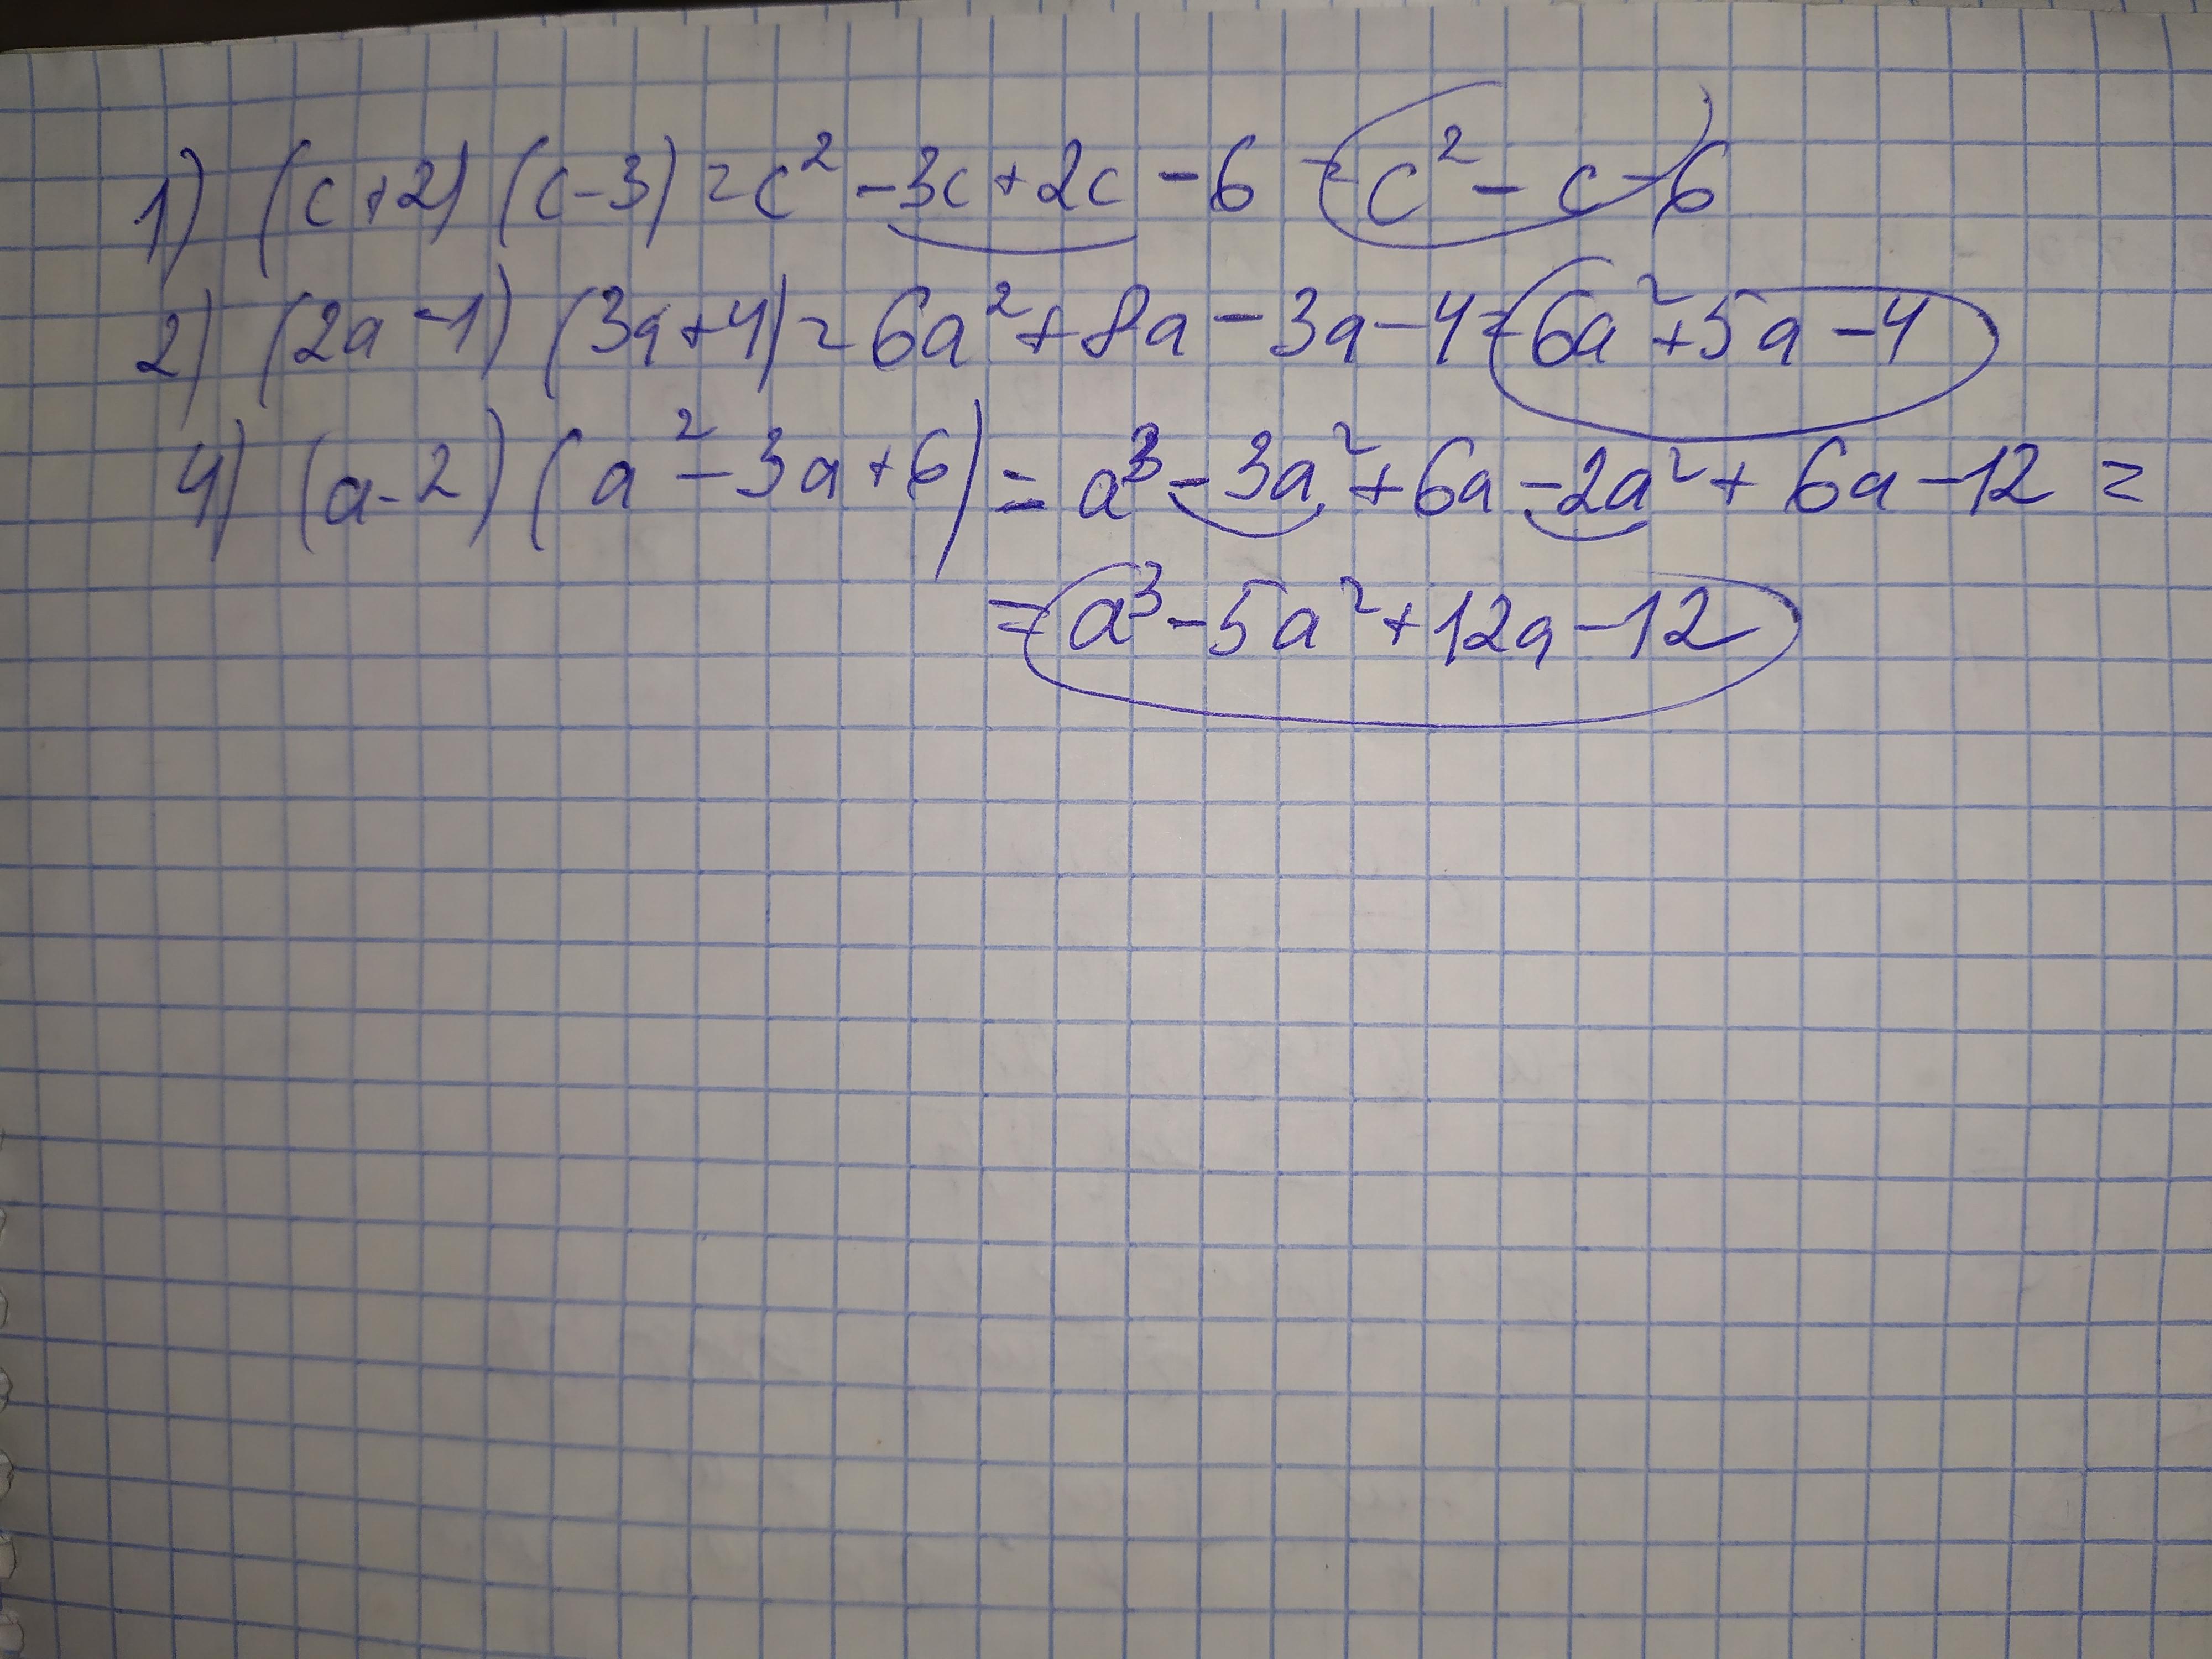 1) (c+2) (c-3) = c² - 3c + 2c - 6 = c² - c - 6
2) (2a - 1) (3a + 4) = 6a² + 8a - 3a - 4 = 6a² + 5a - 4
4) (a - 2) (a² - 3a + 6) = a³ - 3a² + 6a - 2a² + 6a - 12 =
= a³ - 5a² + 12a - 12